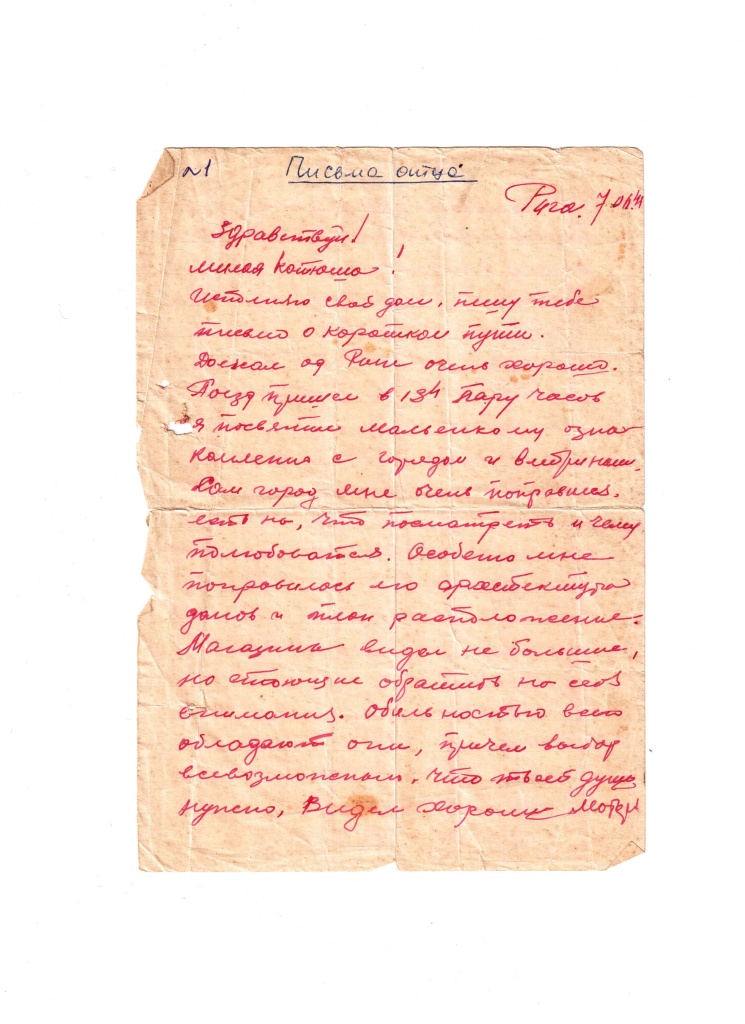 №1 Письма отца
Рига. 7
Здравствуй!
милая Катюша!
Исполняю свой долг, пишу тебе
письмо о коротком пути.
Доехал до Риги очень хорошо.
Поезд пришел в 13ч Пару часов
я посвятил маленькому озна
комления с городом и витринами.
Сам город мне очень понравился.
есть на, что посмотреть и чему
полюбоватся. Особено мне
понравилось его архетектура
домов и план расположение.
Магазины видел не большие,
но стоющие обратить на себя
внимания. Обильностью всего
обладают они, причем выбор
всевозможный, что твоей душе
нужно, Видел хороший